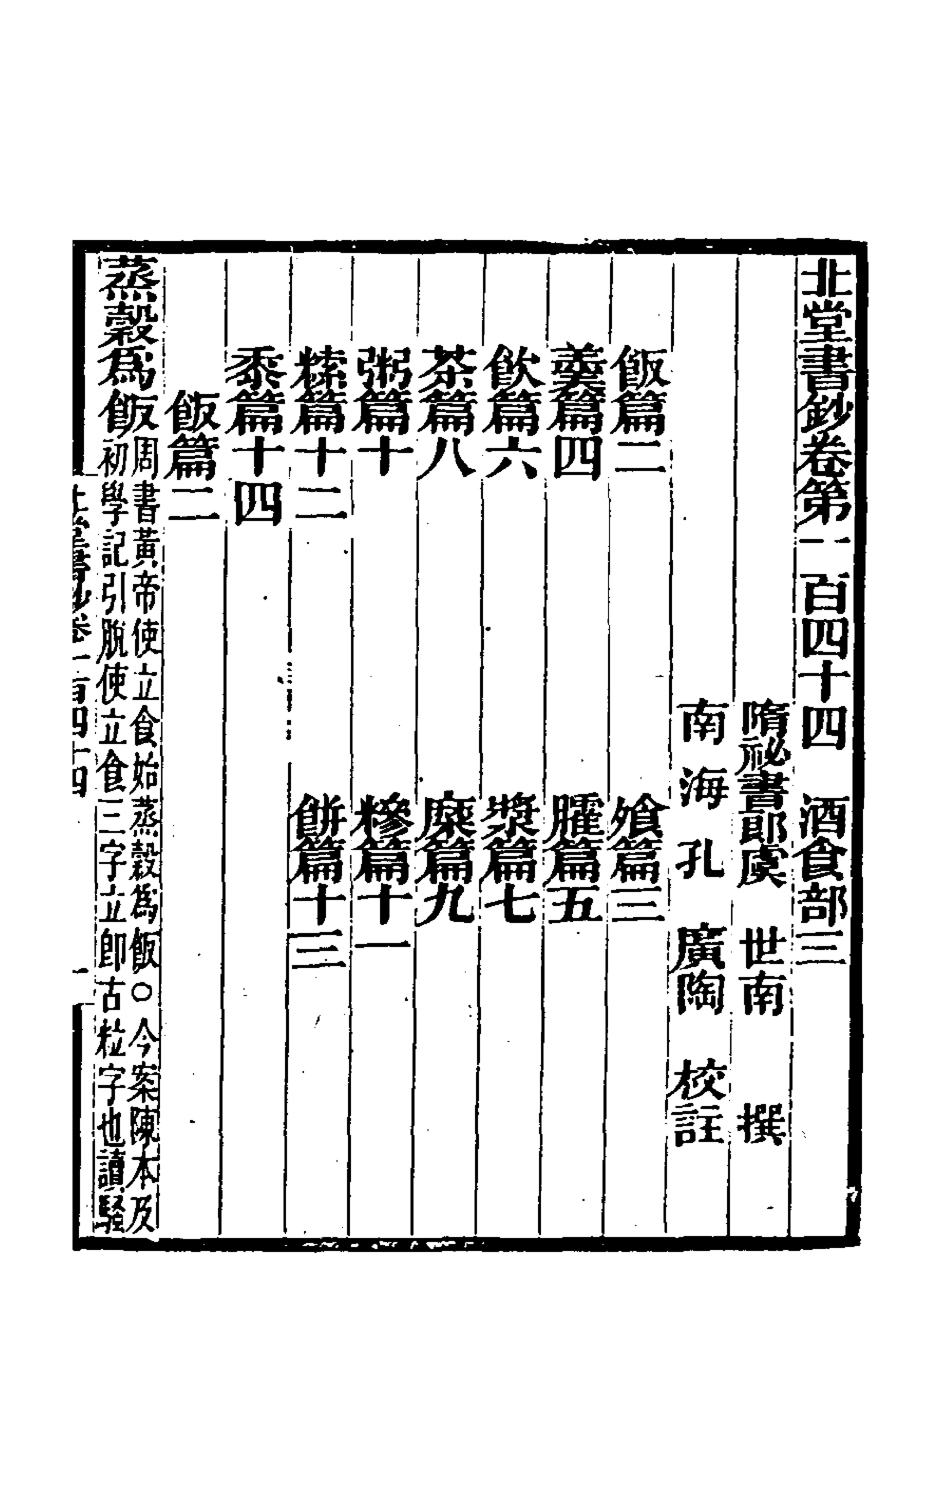 北堂書鈔卷第一百四十四　酒食部三
隋祕書郎虞　世南　撰
南海孔　廣陶　校註
飯篇二　飧篇三
羹篇四　臛篇五
飲篇六　漿篇七
茶篇八　糜篇九
粥篇十　糝篇十一
䊝篇十二　餅篇十三
黍篇十四
飯篇二
蒸穀爲飯
周書黃帝使立食始蒸穀爲飯○今案陳本及
初學記引脫使立食三字立卽古粒字也讀騷
北堂書鈔卷一百四十四
一